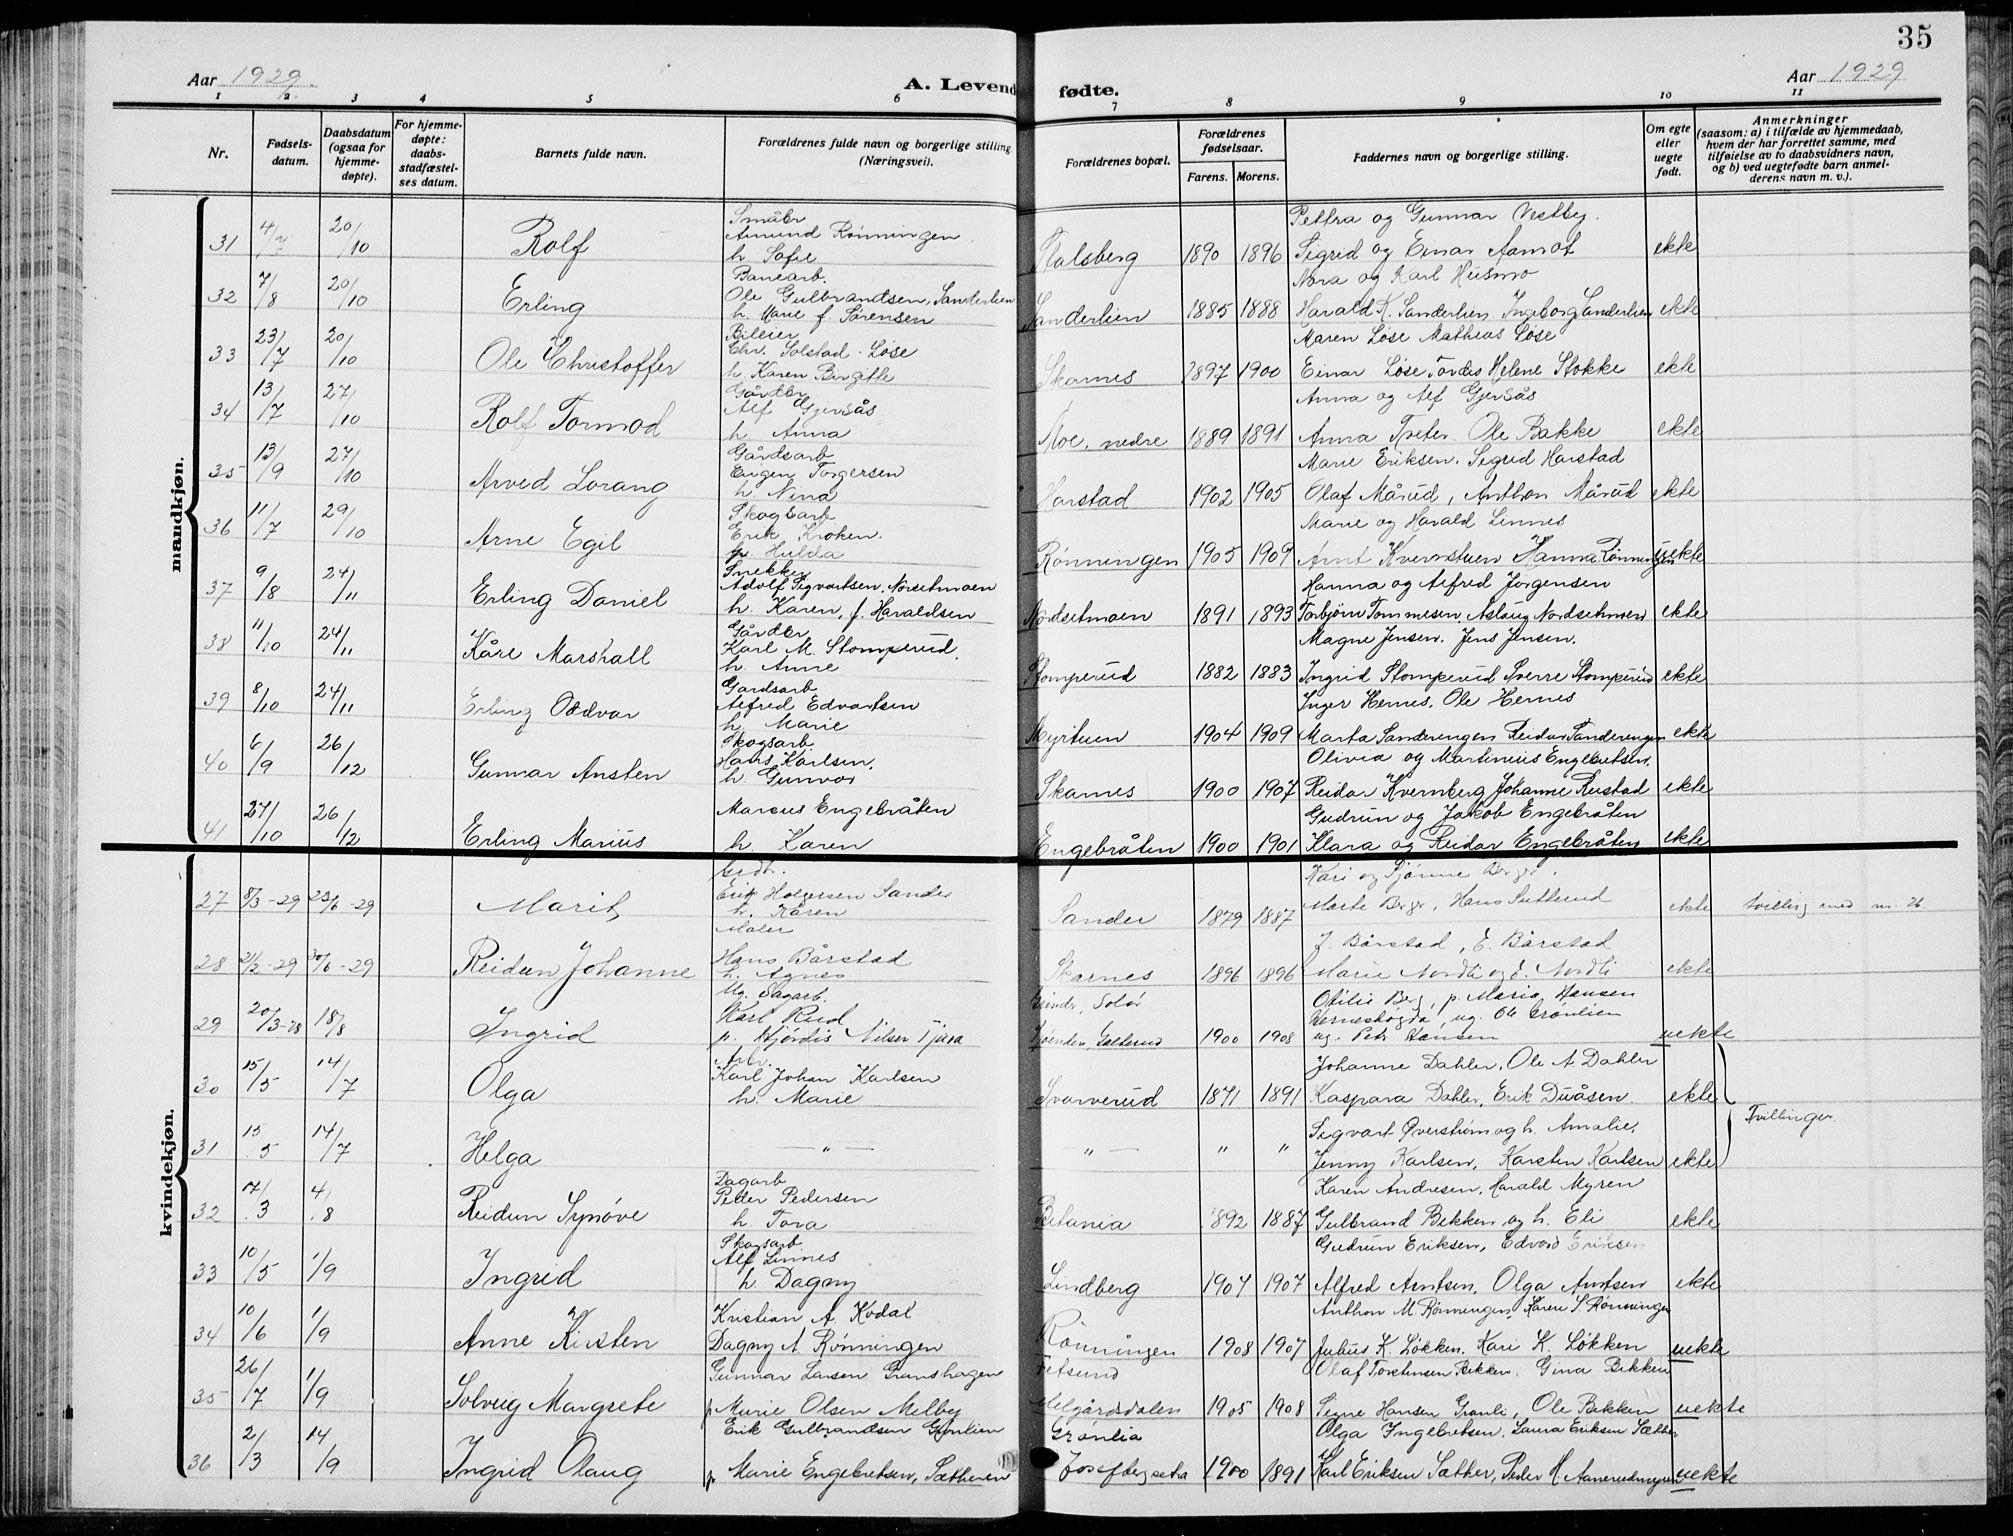 35
Aar 1929.
A. Levende fødte.
Aar 1929
1 2 3 4 5 6 7 8 9 10 11
Nr.
Fødsels-
datum.
Daabsdatum
(ogsaa for
hjemme-
døpte).
For hjemme-
døpte:
daabs-
stadfæstel-
ses datum.
Barnets fulde navn.
Forældrenes fulde navn og borgerlige stilling.
(Næringsvei).
Forældrenes bopæl.
Forældrenes
fødselsaar.
Farens. Morens.
Faddernes navn og borgerlig stilling.
Om egte
eller
uegte
født.
Anmerkninger
(saasom: a) i tilfælde av hjemmedaab,
hvem der har forrettet samme, med
tilføielse av to daabsvidners navn,
og b) ved uegtefødte barn anmel-
derens navn m. v.).
mandkjøn.
Småbr Pettra og Gunnar Vestby.
31 4/7 20/10 Rolf Amund Rønningen h. Sofie Stalsberg 1890 1896 Sigrid og Einar Aamot ekte
Banearb. Nora og Karl Husmo
32 7/8 20/10 Erling Ole Gulbrandsen, Sanderlien h. Marie f. Sørensen Sanderlien 1885 1888 Harald K. Sanderlien Ingeborg Sanderlien ekte
Bileier Maren Løse Mathias Løse
33 23/7 20/10 Ole Christoffer Chr. Solstad-Løse h. Karen Birgitte Skarnes 1897 1900 Einar Løse Tordis Helene Stokke ekte
Gårdbr Anna og Alf Gjersås
34 13/7 27/10 Rolf Tormod Alf Gjersås h. Anna Moe, nedre 1889 1891 Anna Tveter. Ole Bakke ekte
Gårdsarb Marie Eriksen. Sigrid Harstad
35 13/9 27/10 Arvid Lorang Eugen Torgersen h. Nina Harstad 1902 1905 Olaf Mårud, Anthon Mårud ekte
Skogsarb Marie og Harald Linnes
36 11/7 29/10 Arne Egil Erik Kroken. p. Hulda Rønningen 1905 1909 Arnt Kvernstuen Hanna Rønningen uekte
Snekker Hanna og Alfred Jørgensen
37 9/8 24/11 Erling Daniel Adolf Sigvartsen, Norsetmoen h. Karen, f. Haraldsen Nordsetmoen 1891 1893 Torbjørn Tommesen Aslaug Nordsetmoen ekte
Gårdbr Magne Jensen. Jens Jensen.
38 11/10 24/11 Kåre Marshall Karl M. Stomperud. h. Anne Stomperud 1882 1883 Ingrid Stomperud Sverre Stomperud ekte
Gårdsarb Inger Hernes. Ole Hernes
39 8/10 24/11 Erling Oddvar Alfred Edvartsen h. Marie Myrtuen 1904 1909 Marta Sanderengen Reidar Sanderengen ekte
Skogsarb Olivia og Martinius Engebretsen.
40 6/9 26/12 Gunnar Ansten Hans Karlsen. h. Gunvor Skarnes 1900 1907 Reidar Kvernberg Johanne Rustad ekte
Gudrun og Jakob Engebråten
41 27/10 26/12 Erling Marius Marcus Engebråten h. Karen Engebråten 1900 1901 Klara og Reidar Engebråten ekte
kvindekjøn.
27 8/3-29 23/6-29 Marit Erik Holgersen Sander h. Karen Sander 1879 1887 Marte Berge, Hans Sætterud ekte tvilling med nr. 26.
Maler J. Bårstad, E. Bårstad
28 21/2-29 30/6-29 Reidun Johanne Hans Bårstad h. Agnes Skarnes 1896 1896 Marie Nordli og E. Nordli ekte
Ug. Sagarb. Grinder, Solør Otilie Berg, p. Maria Hansen
29 20/3-28 18/8 Ingrid Karl Rud p. Hjørdis Nilsen Tjura 1900 1908 ug. Petr Hansen uekte
Arb. Johanne Dahler, Ole A. Dahler
30 15/5 14/7 Olga Karl Johan Karlsen h. Marie Svarverud 1871 1891 Kaspara Dahler, Erik Duåsen. ekte
Tvillinger.
Sigvart Øverstrøm og h. Amalie.
31 15/5 14/7 Helga — " — " — " " Jenny Karlsen, Karsten Karlsen ekte
Dagarb Karen Andresen, Harald Myren
32 7/3 4/8 Reidun Synøve Petter Pedersen h. Tora Betania 1892 1887 Gulbrand Bekken og h. Eli ekte
Skogsarb Gudrun Eriksen, Edvard Eriksen
33 10/5 1/9 Ingrid Alf Linnes h. Dagny Lundberg 1907 1907 Alfred Arntsen, Olga Arntsen ekte
Kristian A. Kodal Anthon M. Rønningen, Karen S. Rønningen
34 10/6 1/9 Anne Kirsten Dagny A. Rønningen Rønningen 1908 1907 Julius K. Løkken, Kari K. Løkken uekte
Gunnar Larsen Granshagen Fetsund Olaf Torstensen Bekken, Gina Bekken
35 26/7 1/9 Solveig Margrete p. Marie Olsen Melby Melgårdsdalen 1905 1908 Signe Hansen Granli, Ole Bekken uekte
Erik Gulbrandsen Grønlien Grønlia Olga Ingebretsen, Laura Eriksen Sæther
36 2/3 14/9 Ingrid Olaug p. Marie Engebretsen, Sætheren Josefbergsetra 1900 1891 Karl Eriksen Sæther, Peder H. Aanerudmyren uekte